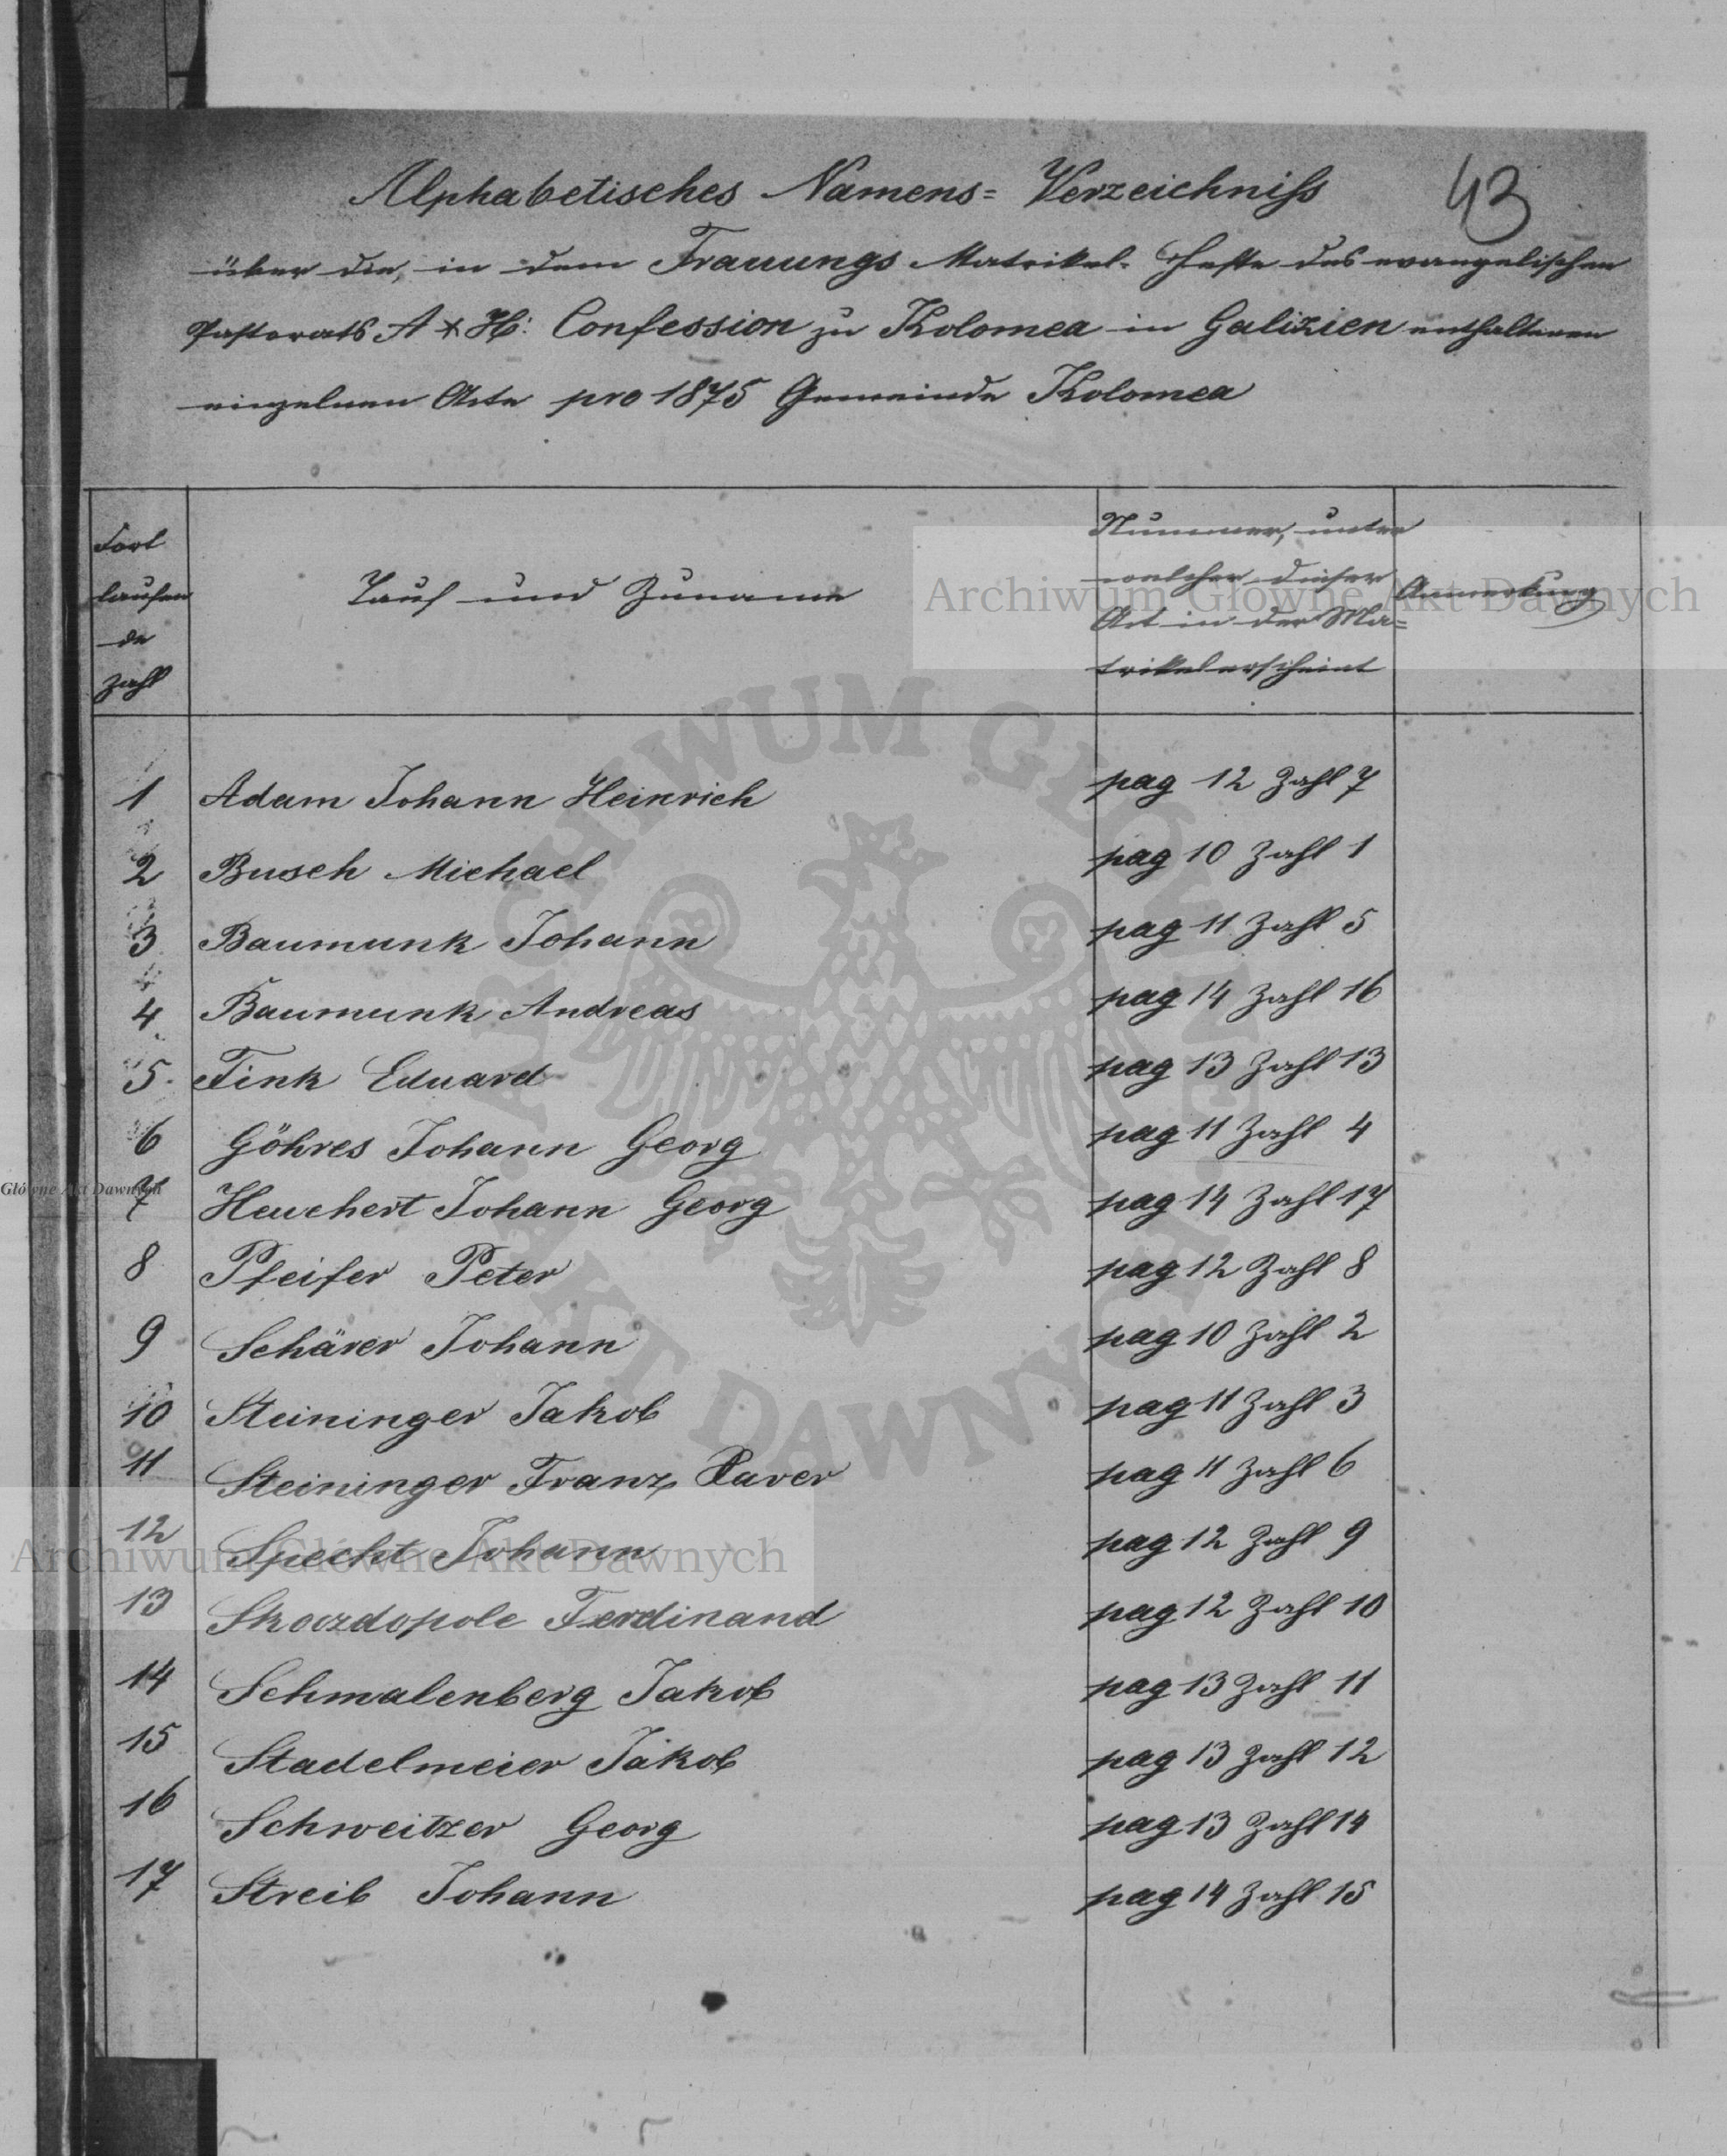 Alphabetisches Namens= Verzeichniſs
43
über die, in dem Trauungs Matrikel- Hefte des evangelischen
Pastorats A & H: Confession zu Kolomea in Galizien enthaltenen
einzelnen Acte pro 1875 Gemeinde Kolomea
Fort
laufen
de
Zahl
Tauf und Zuname
Nummer, unter
welcher dieser
Act in der Ma=
trikel erscheint
Anmerkung
1 Adam Johann Heinrich pag 12 Zahl 7
2 Busch Michael pag 10 Zahl 1
3 Baumunk Johann pag 11 Zahl 5
4 Baumunk Andreas pag 14 Zahl 16
5 Fink Eduard pag 13 Zahl 13
6 Göhres Johann Georg pag 11 Zahl 4
7 Heuchert Johann Georg pag 14 Zahl 17
8 Pfeifer Peter pag 12 Zahl 8
9 Schärer Johann pag 10 Zahl 2
10 Steininger Jakob pag 11 Zahl 3
11 Steininger Franz Xaver pag 11 Zahl 6
12 Specht Johann pag 12 Zahl 9
13 Skorzdopole Ferdinand pag 12 Zahl 10
14 Schmalenberg Jakob pag 13 Zahl 11
15 Stadelmeier Jakob pag 13 Zahl 12
16 Schweitzer Georg pag 13 Zahl 14
17 Streib Johann pag 14 Zahl 15
Archiwum Główne Akt Dawnych
Główne Akt Dawnych
Archiwum Główne Akt Dawnych
ARCHIWUM GŁÓWNE AKT DAWNYCH